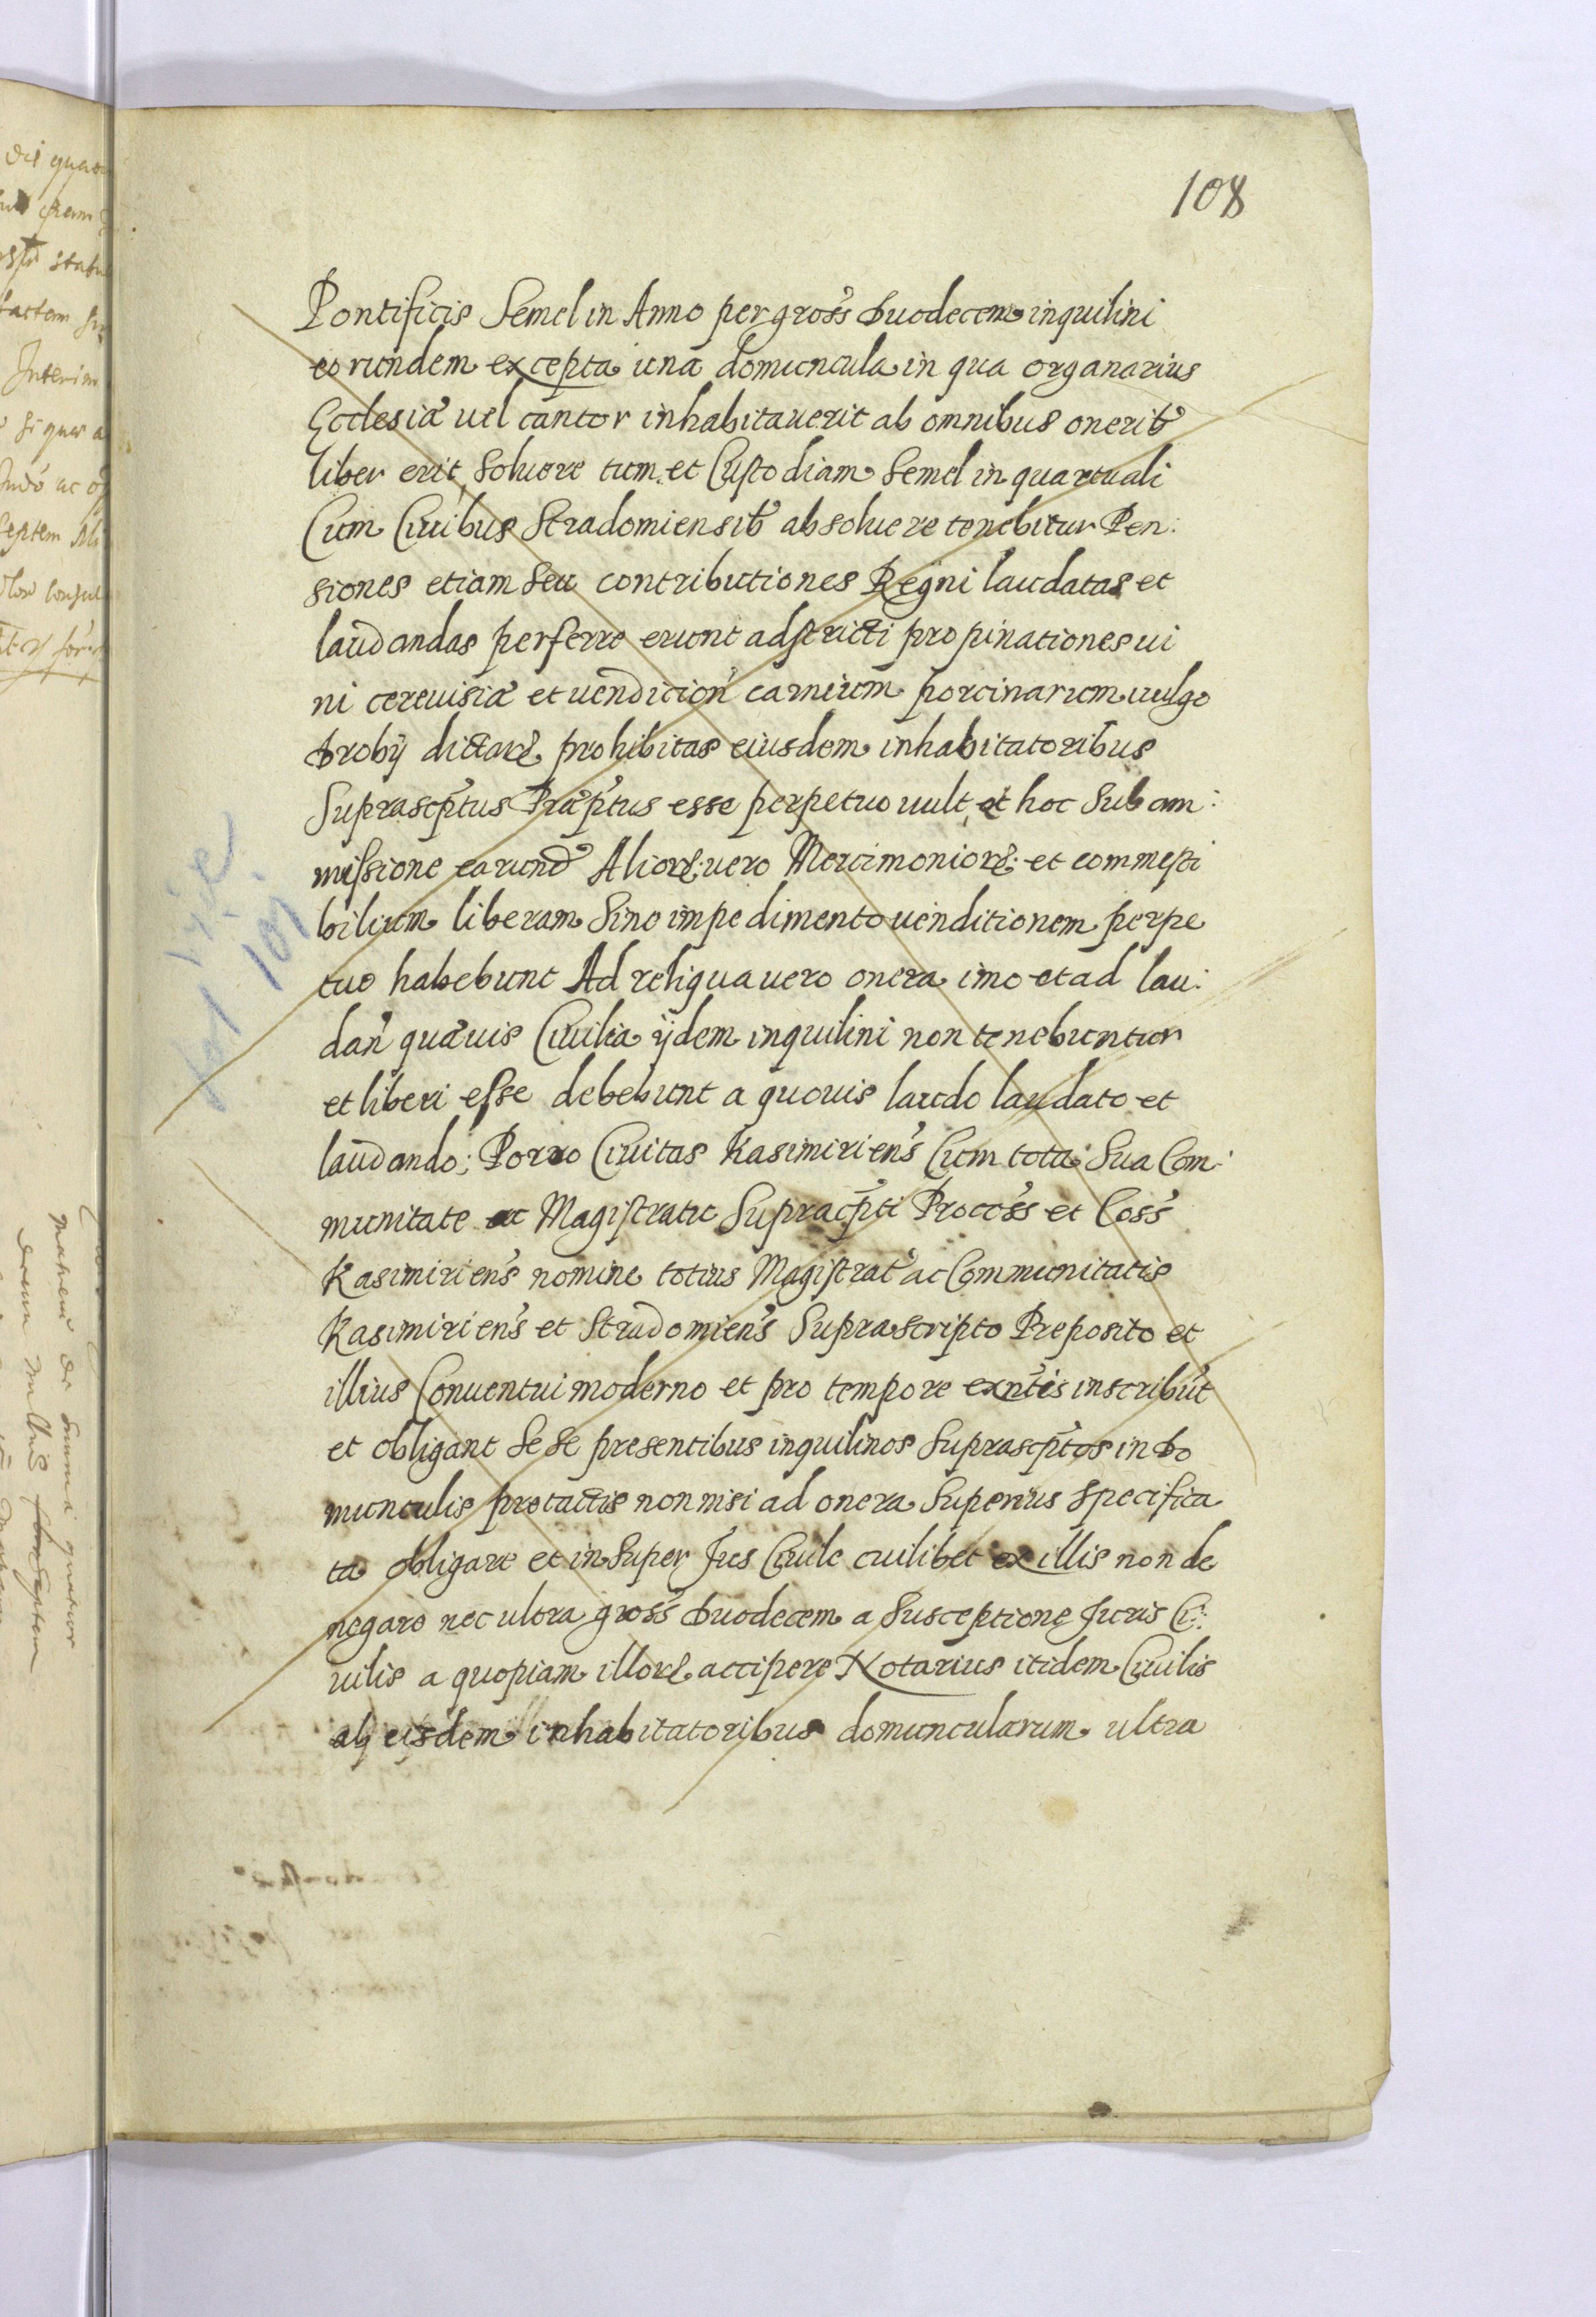 108
Pontificis Semel in Anno per gross duodecem inquilini
eorundem excepta una domuncula in qua organarius
Ecclesiæ uel cantor inhabitauerit ab omnibus onerib
liber erit, Soluere tum et Custodiam Semel in quartuali
Cum Ciuibus Stradomiensib absoluere tenebitur Pen:
siones etiam Seu contributiones Regni laudatas et
laudandas perferre erunt adstricti propinationes ui
ni cereuisiæ et uendicion carnium porcinarum uulgo
drobij dictare prohibitas eiusdem inhabitatoribus
Suprascptus Præptus esse perpetuo uult, et hoc Sub am:
missione earund Alior uero Mercimonior et commesti
bilium liberam Sine impedimento uenditionem perpe
tuo habebunt Ad reliqua uero onera imo et ad lau:
dan quæuis Ciuilia ijdem inquilini non tenebuntur
et liberi esse debebunt a quouis laudo laudato et
laudando; Porro Ciuitas Kasimiriens Cum tota Sua Com:
munitate ac Magistratu Supracpti Procoss et Coss
Kasimiriens nomine totius Magistrat ac Communitatis
Kasimiriens et Stradomiens Suprascripto Preposito et
illius Conuentui moderno et pro tempore exntis inscribut
et obligant Sese presentibus inquilinos Suprascptos in do
munculis pretactis non nisi ad onera Superius specifica
ta obligare et in Super Jus Ciuile cuilibet ex illis non de
negare nec ultra gross duodecem a Susceptione Juris Ci:
uilis a quopiam illor accipere Notarius itidem Ciuilis
ab eisdem inhabitatoribus domuncularum ultra